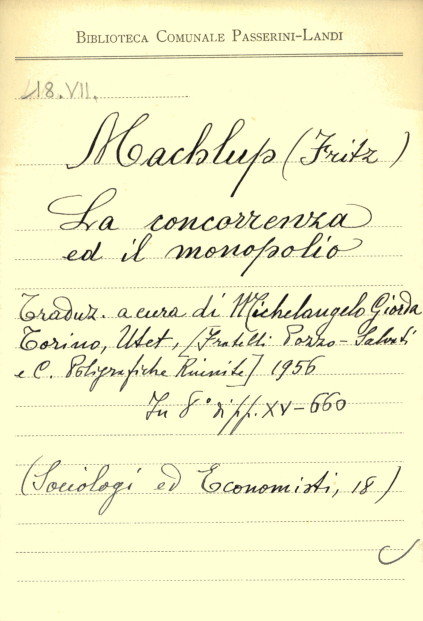 BIBLIOTECA COMUNALE PASSERINI-LANDI
18.VII.
Machlup (Fritz)
La concorrenza
ed il monopolio
Traduz. a cura di Michelangelo Giorda
Torino, Utet, [Fratelli Pozzo-Salvati
e C. Poligrafiche Riunite] 1956
In 8° di pp. XV-660
(Sociologi ed Economisti, 18)